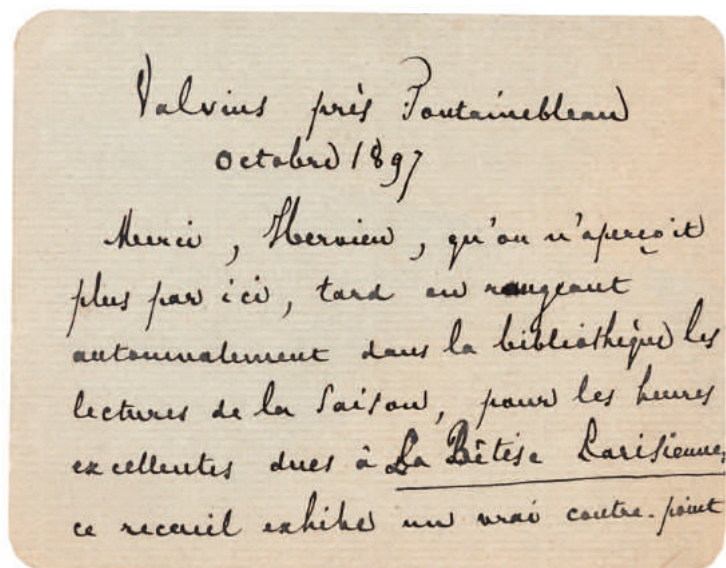 Valvins près Fontainebleau
octobre 1897
Merci, Hervieu, qu'on n'aperçoit
plus par ici, tard en rangeant
automnalement dans la bibliothèque les
lectures de la saison, pour les heures
excellentes dues à La Bêtise Parisienne,
ce recueil exhibe un vrai contre-point